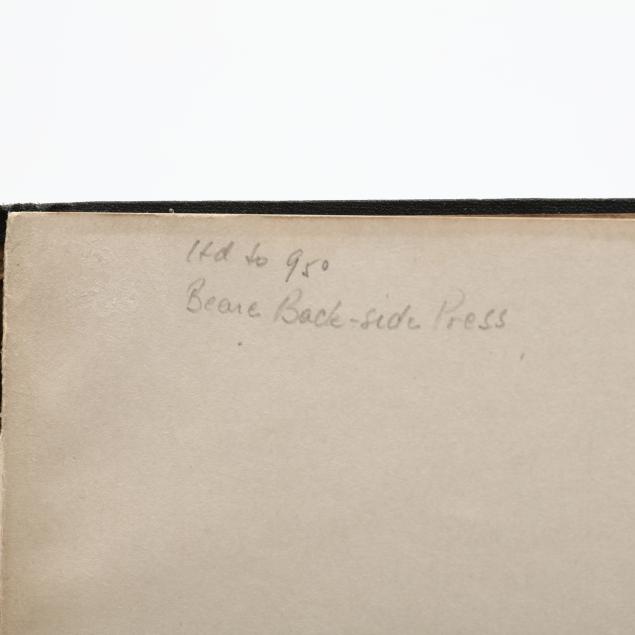 ltd to 950
Beare Back-side Press